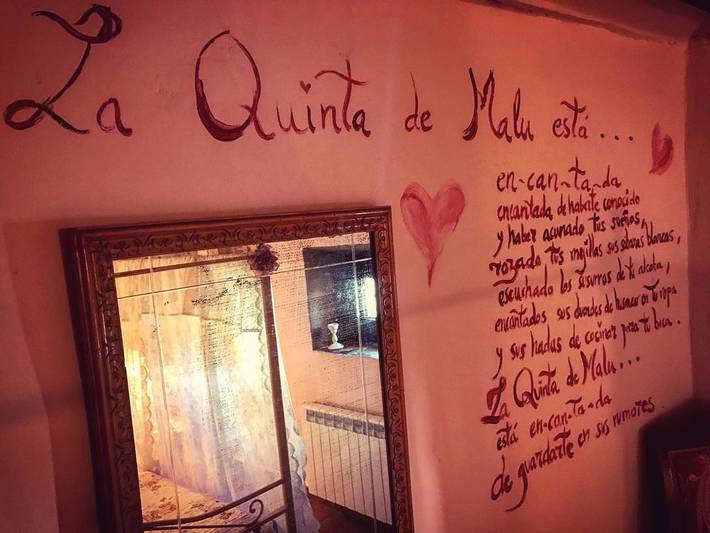 La Quinta de Malu está...
en-can-ta-da
encantada de haberte conocido
y haber acunado tus sueños,
rozado tus mejillas sus sabanas blancas,
escuchado los susurros de tu alcoba,
encantados sus duendes de humear en tu ropa
y sus hadas de cocinar para tu boca.
La Quinta de Malu...
está en-can-ta-da
de guardarte en sus rumores.